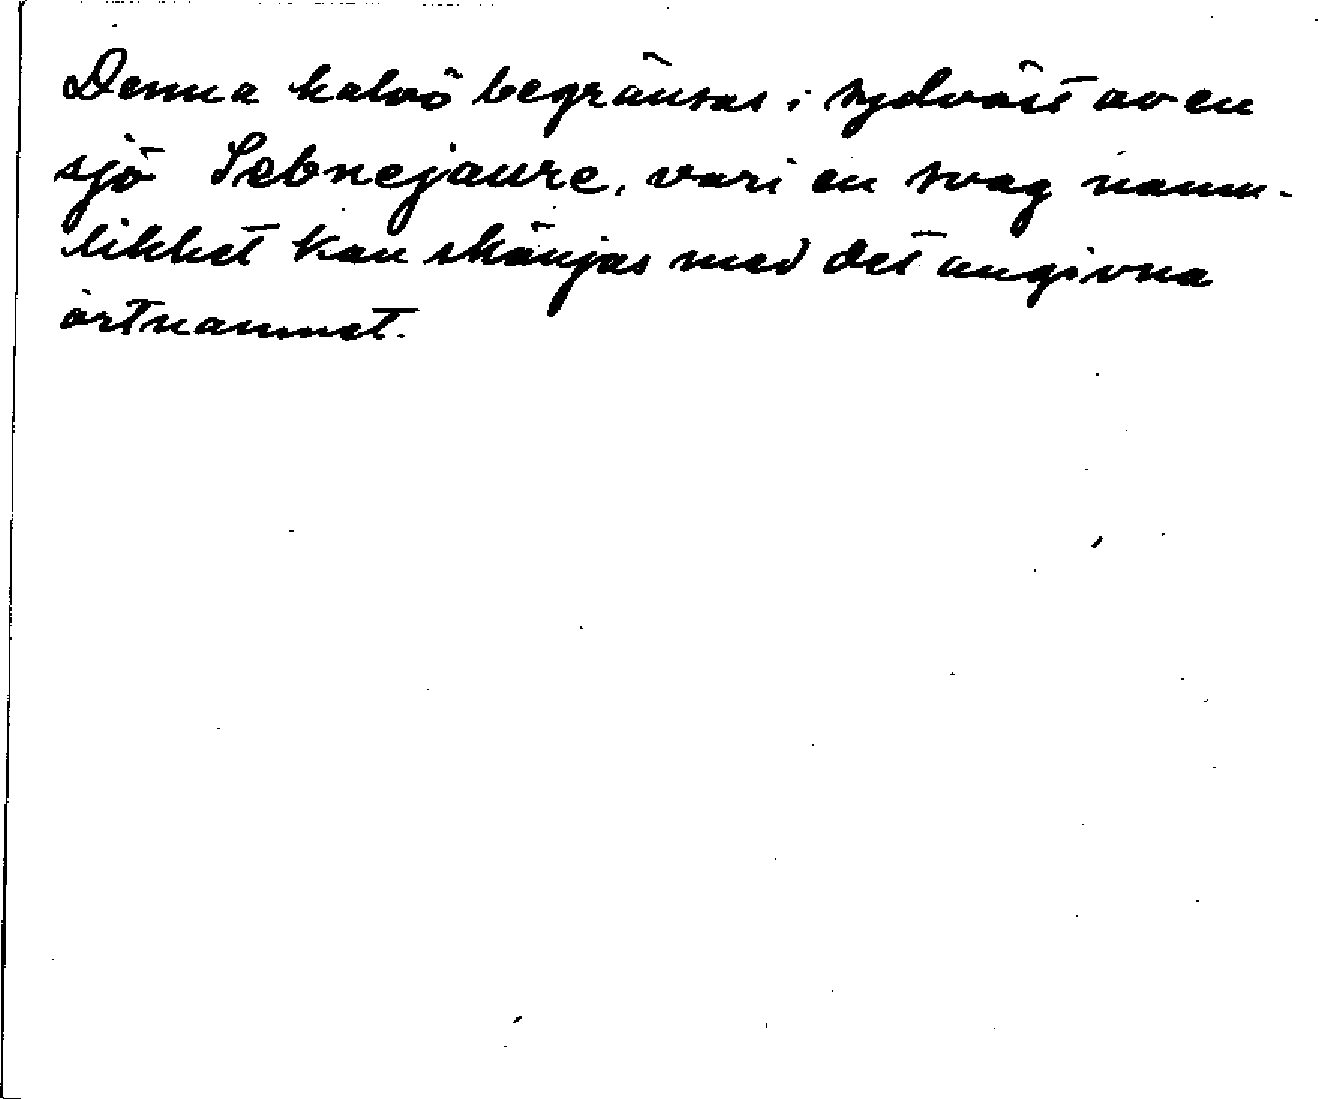 Denna halvö begränsas i sydväst av en
sjö Sebnejaure, vari en svag namn-
likhet kan skönjas med det angivna
ortnamnet.